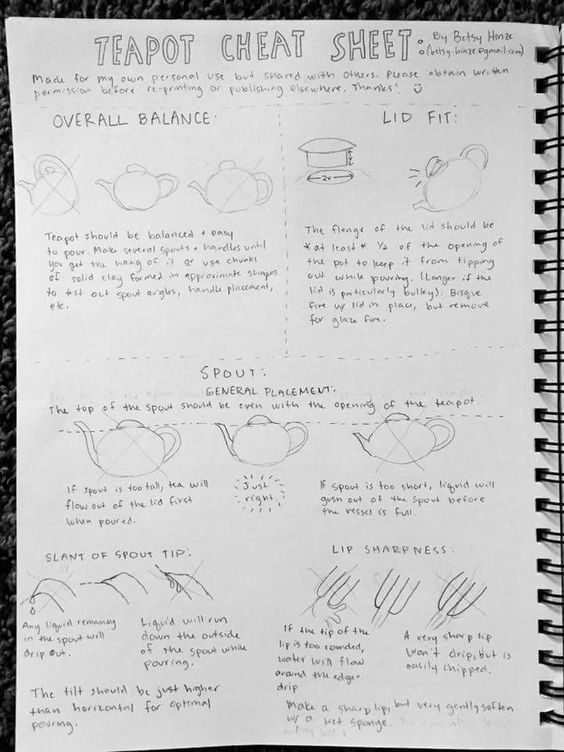 TEAPOT CHEAT SHEET:
By Betsy Hinze
(betsy.hinze@gmail.com)
Made for my own personal use but shared with others. Please obtain written
permission before re-printing or publishing elsewhere. Thanks!
OVERALL BALANCE:
Teapot should be balanced + easy
to pour. Make several spouts + handles until
you get the hang of it or use chunks
of solid clay formed in approximate shapes
to test out spout angles, handle placement,
etc.
LID FIT:
The flange of the lid should be
*at least* 1/2 of the opening of
the pot to keep it from tipping
out while pouring. (Longer if the
lid is particularly bulky). Bisque
fire w/ lid in place, but remove
for glaze fire.
SPOUT:
GENERAL PLACEMENT:
The top of the spout should be even with the opening of the teapot.
If spout is too tall, tea will
flow out of the lid first
when poured.
Just
right
If spout is too short, liquid will
gush out of the spout before
the vessel is full.
SLANT OF SPOUT TIP:
Any liquid remaining
in the spout will
drip out.
Liquid will run
down the outside
of the spout while
pouring.
The tilt should be just higher
than horizontal for optimal
pouring.
LIP SHARPNESS:
If the tip of the
lip is too rounded,
water will flow
around the edge +
drip
A very sharp lip
won't drip, but is
easily chipped.
Make a sharp lip, but very gently soften
w/ a wet sponge.